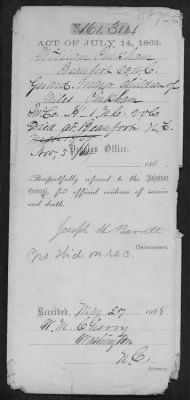 161.314
ACT OF JULY 14, 1862.
William
Beaufort Co N.C.
Guard. Minor Children of
Miles
Pvt. Co. H 1 N.C. Vols
Died at Beaufort N.C.
Pension Office,
Nov, 5 186
Respectfully referred to the Adjutant
General, for official evidence of service
and death.
Joseph H Barrett
Commissioner.
on rec.
Received, May 27 1868
W. M. Cherry
Washington
N.C.
Attorney